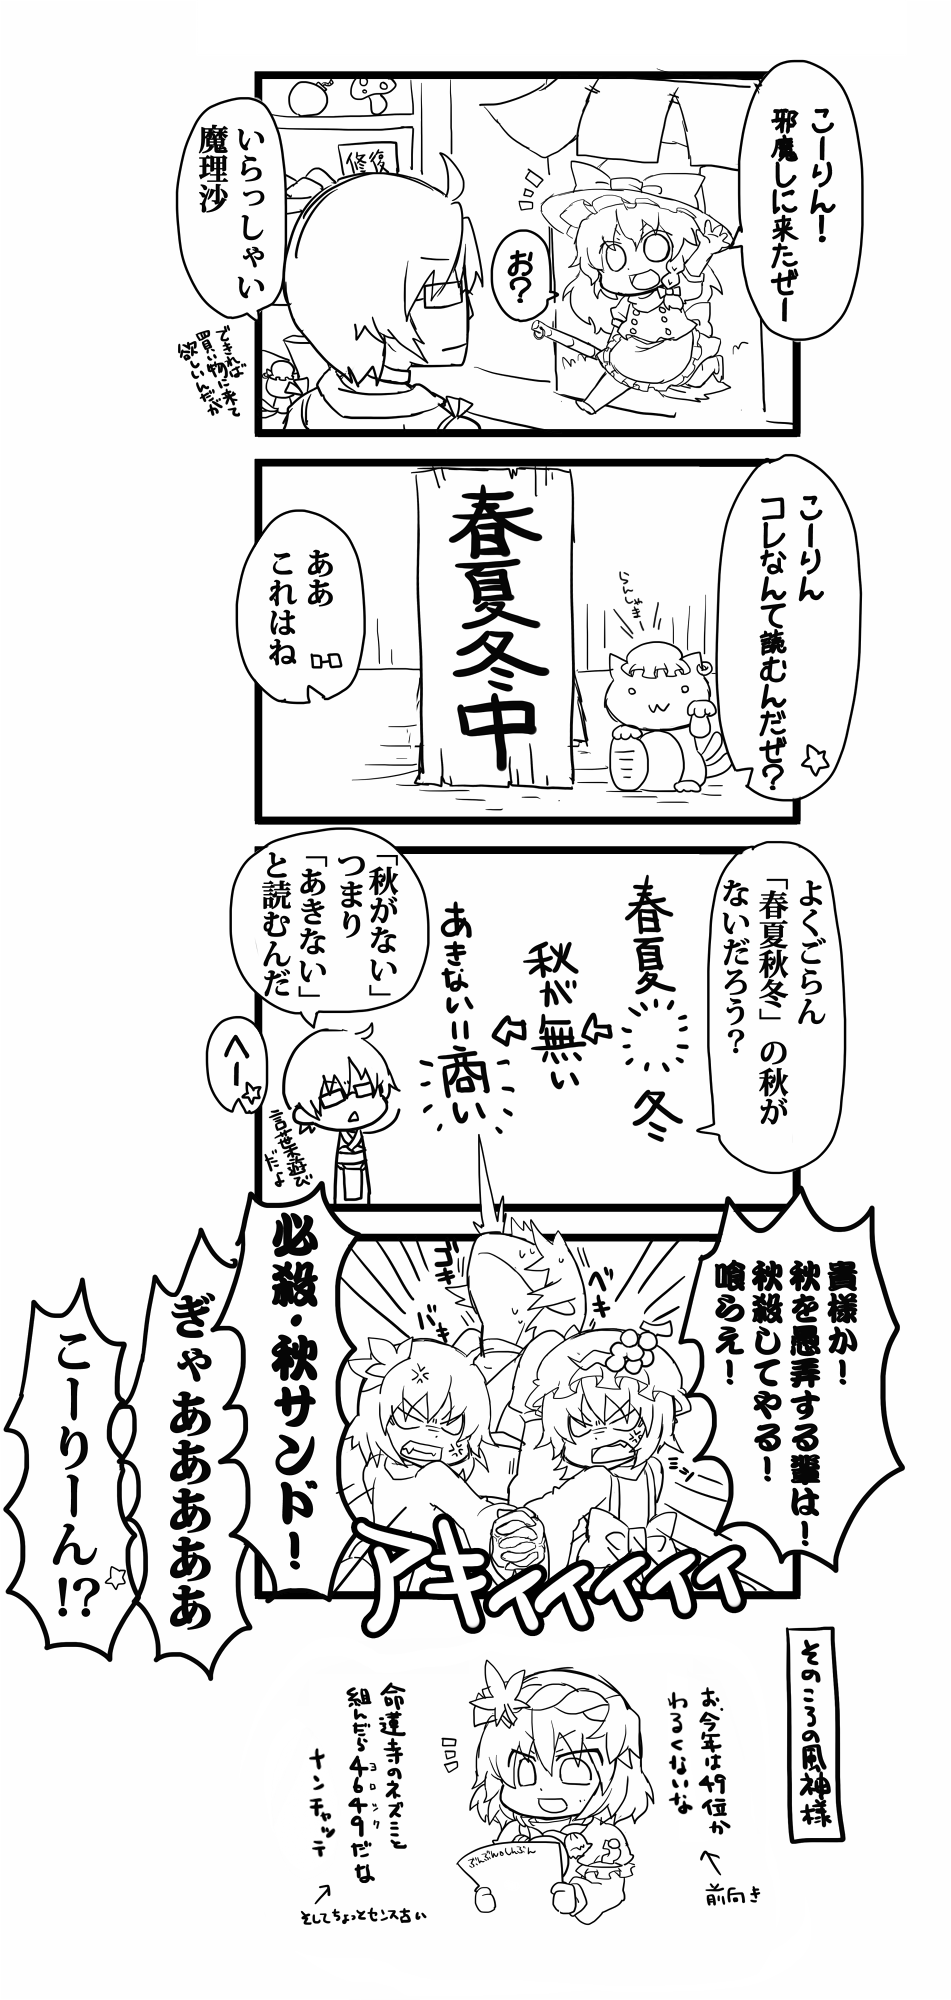 こーりん！
邪魔しに来たぜー
お？
修復
いらっしゃい
魔理沙
できれば
買い物に来て
欲しいんだが
こーりん
コレなんて読むんだぜ？
らんしゃま
春夏冬中
ああ
これはね
よくごらん
「春夏秋冬」の秋が
ないだろう？
春夏 冬
秋が無い
あきない＝商い
「秋がない」
つまり
「あきない」
と読むんだ
へー
言葉遊び
だよ
貴様か！
秋を愚弄する輩は！
秋殺してやる！
喰らえ！
ベキ
ゴキ
バキ
ミシ
必殺・秋サンド！
アキィィィィィ
ぎゃああああああ
こーりーん!?
そのころの風神様
お、今年は49位か
わるくないな
前向き
ぶんぶん。しんぶん
命蓮寺のネズミと
組んだら4649だな
ヨロシク
ナンチャッテ
そしてちょっとセンス古い